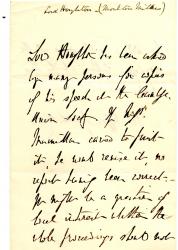 Lord Houghton (Monckton Milnes)
Lord Houghton has been asked
by many persons for copies
of his speech at the Cambridge
Union. If Mr.
Macmillan cared to print
it, he would revise it, no
report having been correct.
It might be a question of
local interest whether the
whole proceedings should not